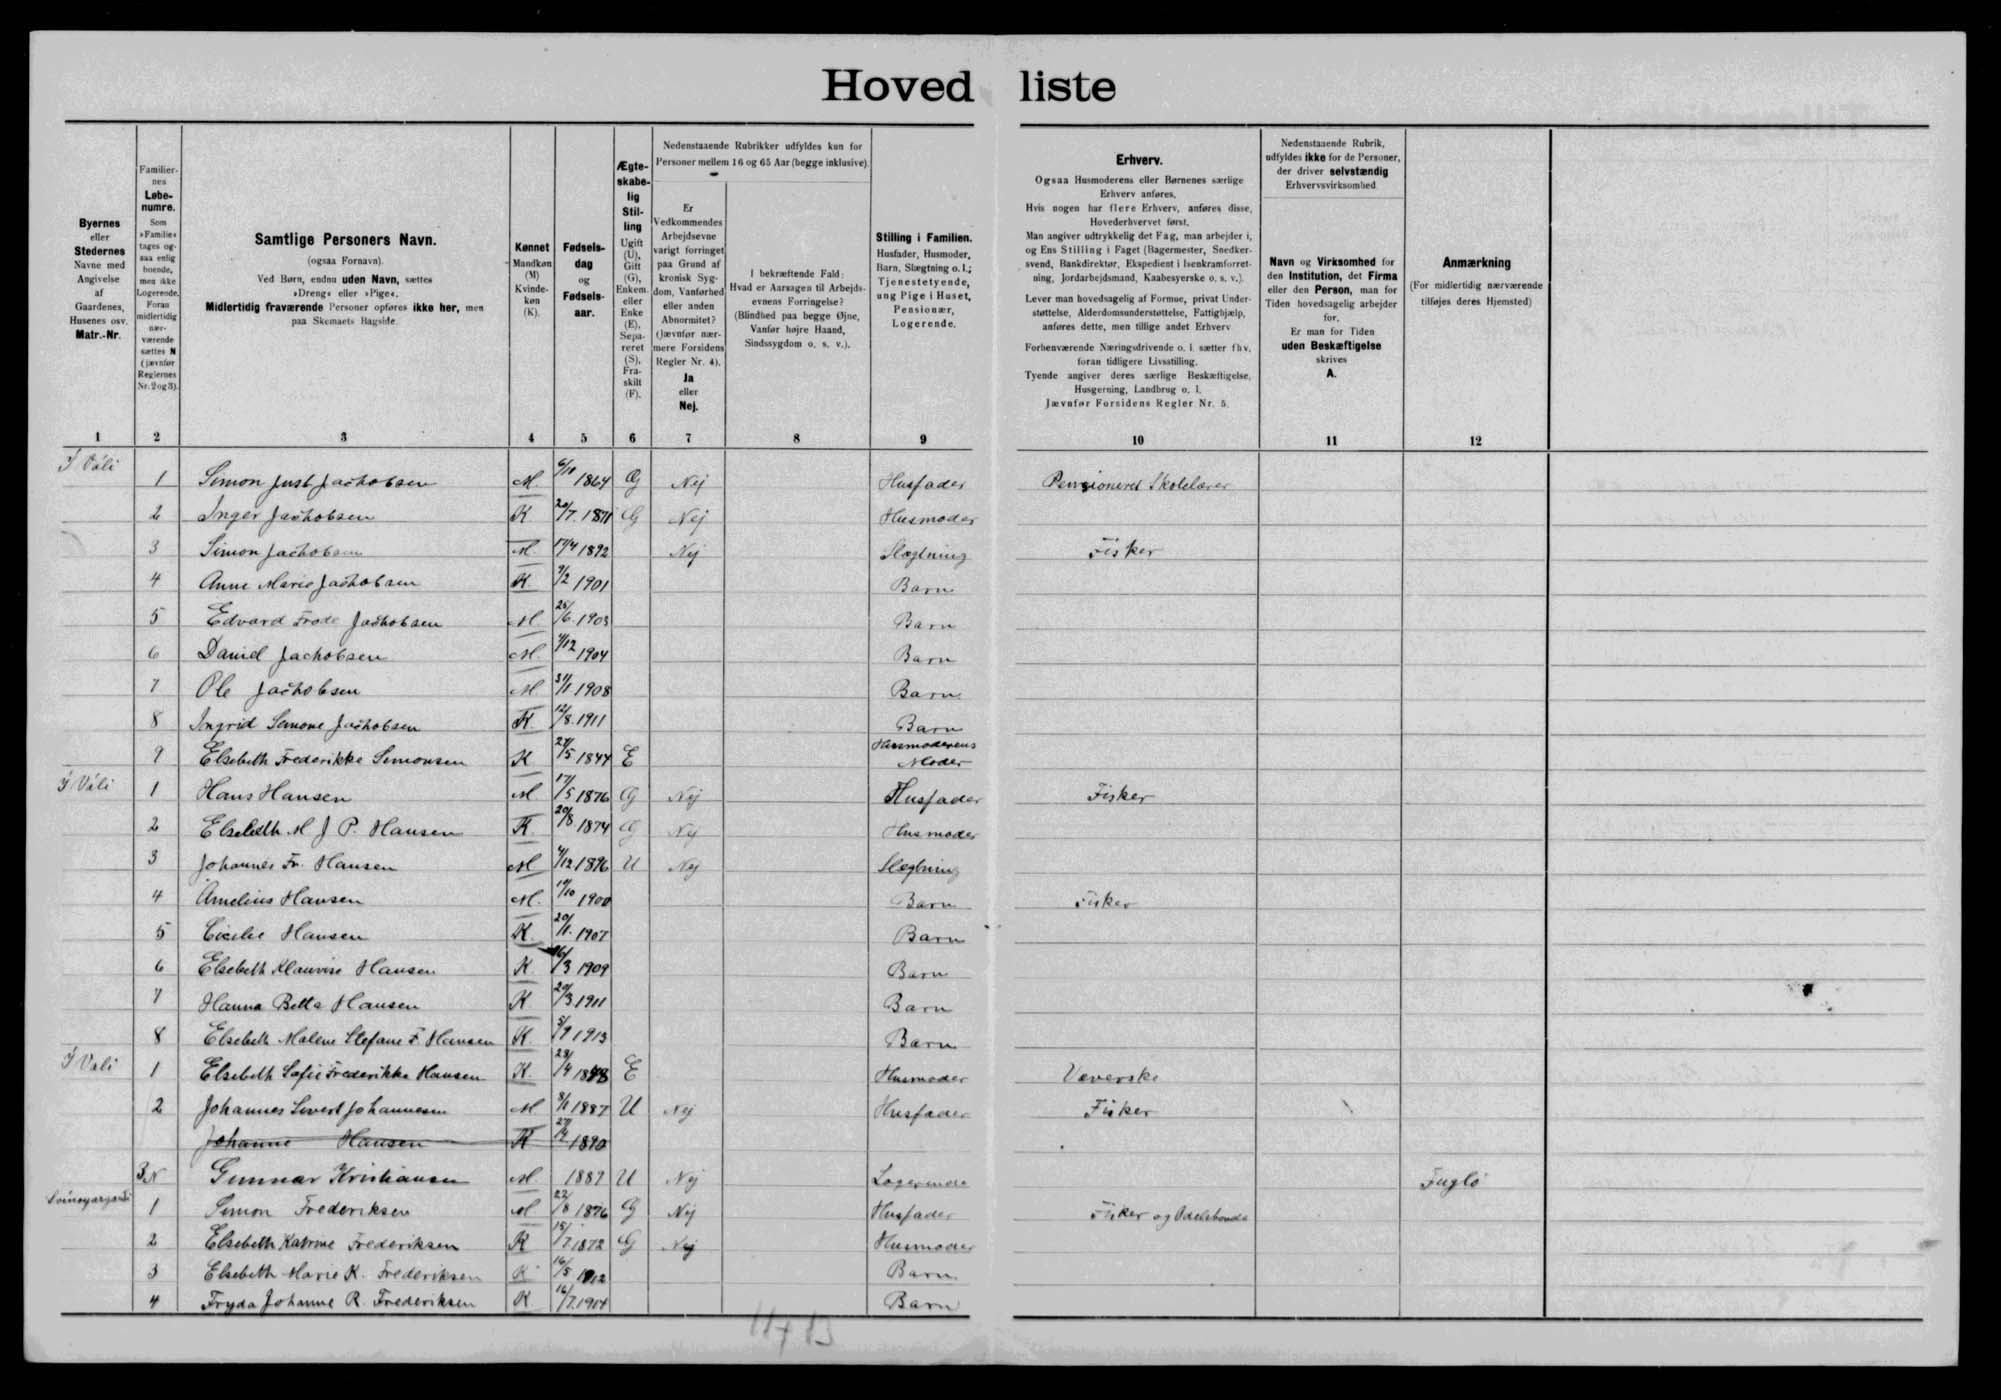 Hovedliste
Byernes
eller
Stedernes
Navne med
Angivelse
af
Gaardenes,
Husenes osv.
Matr.-Nr.
Familier-
nes
Løbe-
numre.
Som
»Familie«
tages og-
saa enlig
boende,
men ikke
Logerende.
Foran
midlertidig
nær-
værende
sættes N
(jævnfør
Reglernes
Nr. 2 og 3).
Samtlige Personers Navn.
(ogsaa Fornavn).
Ved Børn, endnu uden Navn, sættes
»Dreng« eller »Pige«.
Midlertidig fraværende Personer opføres ikke her, men
paa Skemaets Bagside.
Kønnet
Mandkøn
(M)
Kvinde-
køn
(K).
Fødsels-
dag
og
Fødsels-
aar.
Ægte-
skabe-
lig
Stil-
ling
Ugift
(U),
Gift
(G),
Enkem.
eller
Enke
(E),
Sepa-
reret
(S),
Fra-
skilt
(F).
Nedenstaaende Rubrikker udfyldes kun for
Personer mellem 16 og 65 Aar (begge inklusive).
Er
Vedkommendes
Arbejdsevne
varigt forringet
paa Grund af
kronisk Syg-
dom, Vanførhed
eller anden
Abnormitet?
(Jævnfør nær-
mere Forsidens
Regler Nr. 4).
Ja
eller
Nej.
I bekræftende Fald:
Hvad er Aarsagen til Arbejds-
evnens Forringelse?
(Blindhed paa begge Øjne,
Vanfør højre Haand,
Sindssygdom o. s. v.).
Stilling i Familien.
Husfader, Husmoder,
Barn, Slægtning o. l.;
Tjenestetyende,
ung Pige i Huset,
Pensionær,
Logerende.
Erhverv.
Ogsaa Husmoderens eller Børnenes særlige
Erhverv anføres.
Hvis nogen har flere Erhverv, anføres disse,
Hovederhvervet først.
Man angiver udtrykkelig det Fag, man arbejder i,
og Ens Stilling i Faget (Bagermester, Snedker-
svend, Bankdirektør, Ekspedient i Isenkramforret-
ning, Jordarbejdsmand, Kaabesyerske o. s. v.).
Lever man hovedsagelig af Formue, privat Under-
støttelse, Alderdomsunderstøttelse, Fattighjælp,
anføres dette, men tillige andet Erhverv
Forhenværende Næringsdrivende o. l. sætter fhv.
foran tidligere Livsstilling.
Tyende angiver deres særlige Beskæftigelse,
Husgerning, Landbrug o. l.
Jævnfør Forsidens Regler Nr. 5.
Nedenstaaende Rubrik,
udfyldes ikke for de Personer,
der driver selvstændig
Erhvervsvirksomhed
Navn og Virksomhed for
den Institution, det Firma
eller den Person, man for
Tiden hovedsagelig arbejder
for.
Er man for Tiden
uden Beskæftigelse
skrives
A.
Anmærkning
(For midlertidig nærværende
tilføjes deres Hjemsted)
1 2 3 4 5 6 7 8 9 10 11 12
Í Váli
1 Simon Just Jachobsen M. 6/11 1864 G Nej Husfader Pensioneret Skolelærer
2 Inger Jachobsen K 20/7. 1871 G Nej Husmoder
3 Simon Jachobsen M. 17/4 1892 Nej Slægtning Fisker
4 Anne Marie Jachobsen K. 9/2 1901 Barn
5 Edvard Frode Jachobsen M. 25/6. 1903 Barn
6 Daniel Jachobsen M. 4/12 1904 Barn
7 Ole Jachobsen M 31/1 1908 Barn
8 Ingrid Semone Jachobsen K. 12/8. 1911 Barn
9 Elsebeth Frederikke Simonsen K 27/5 1844 E Husmoderens Moder
Í Váli 1 Hans Hansen M. 17/5 1876 G Nej Husfader Fisker
2 Elsebeth M J P. Hansen K. 20/8 1874 G Nej Husmoder
3 Johannes Fr. Hansen M 4/12 1896 U Nej Slægtning
4 Amelius Hansen M. 19/10 1900 Barn Fisker
5 Cicilie Hansen K. 20/1. 1907 Barn
6 Elsebeth Klauvise Hansen K. 16/3 1909 Barn
7 Hanna Betta Hansen K 20/3 1911 Barn
8 Elsebeth Malene Stefane F. Hansen K. 5/9 1913 Barn
Í Vali 1 Elsebeth Sofie Frederikke Hansen K. 28/4 1848 E Husmoder Væverske
2 Johannes Sivert Johannesen M 8/1 1887 U Nej Husfader Fisker
Johanne Hansen K 1890
3 N Gunnar Kristiansen M. 1887 U Nej Logerende Fuglö
1 Simon Frederiksen M 22/8 1876 G Nej Husfader Fisker og Odelsbonde
2 Elsebeth Katrine Frederiksen K 15/7 1872 G Nej Husmoder
3 Elsebeth Marie K. Frederiksen K 16/5 1912 Barn
4 Fryda Johanne R. Frederiksen K 16/7. 1914 Barn